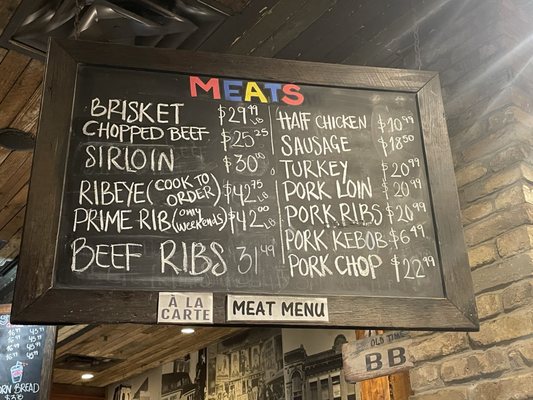 MEATS
BRISKET $29.99 LB
CHOPPED BEEF $25.25
SIRLOIN $30.
RIBEYE (COOK TO ORDER) $42.75
PRIME RIB (only weekends) $42.00
BEEF RIBS 31.49
HALF CHICKEN $10.99
SAUSAGE $18.50
TURKEY $20.99
PORK LOIN $20.99
PORK RIBS $20.99
PORK KEBOB $6.49
PORK CHOP $22.99
À LA CARTE
MEAT MENU
OLD TIME
BB